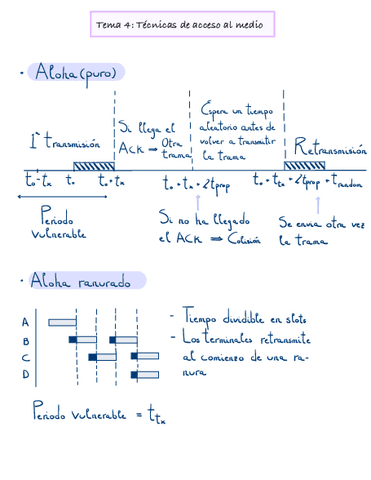 Tema 4: Técnicas de acceso al medio
· Aloha (puro)
1ª transmisión
Si llega el
ACK ⇒ Otra
trama
Espera un tiempo
aleatorio antes de
volver a transmitir
la trama
Retransmisión
to - tx
to
to + tx
to + tx + 2tprop
to + ttx + 2tprop + trandom
Periodo
vulnerable
Si no ha llegado
el ACK ⇒ Colisión
Se envia otra vez
la trama
· Aloha ranurado
A
B
C
D
- Tiempo dividible en slots
- Los terminales retransmite
al comienzo de una ra-
nura
Periodo vulnerable = ttx